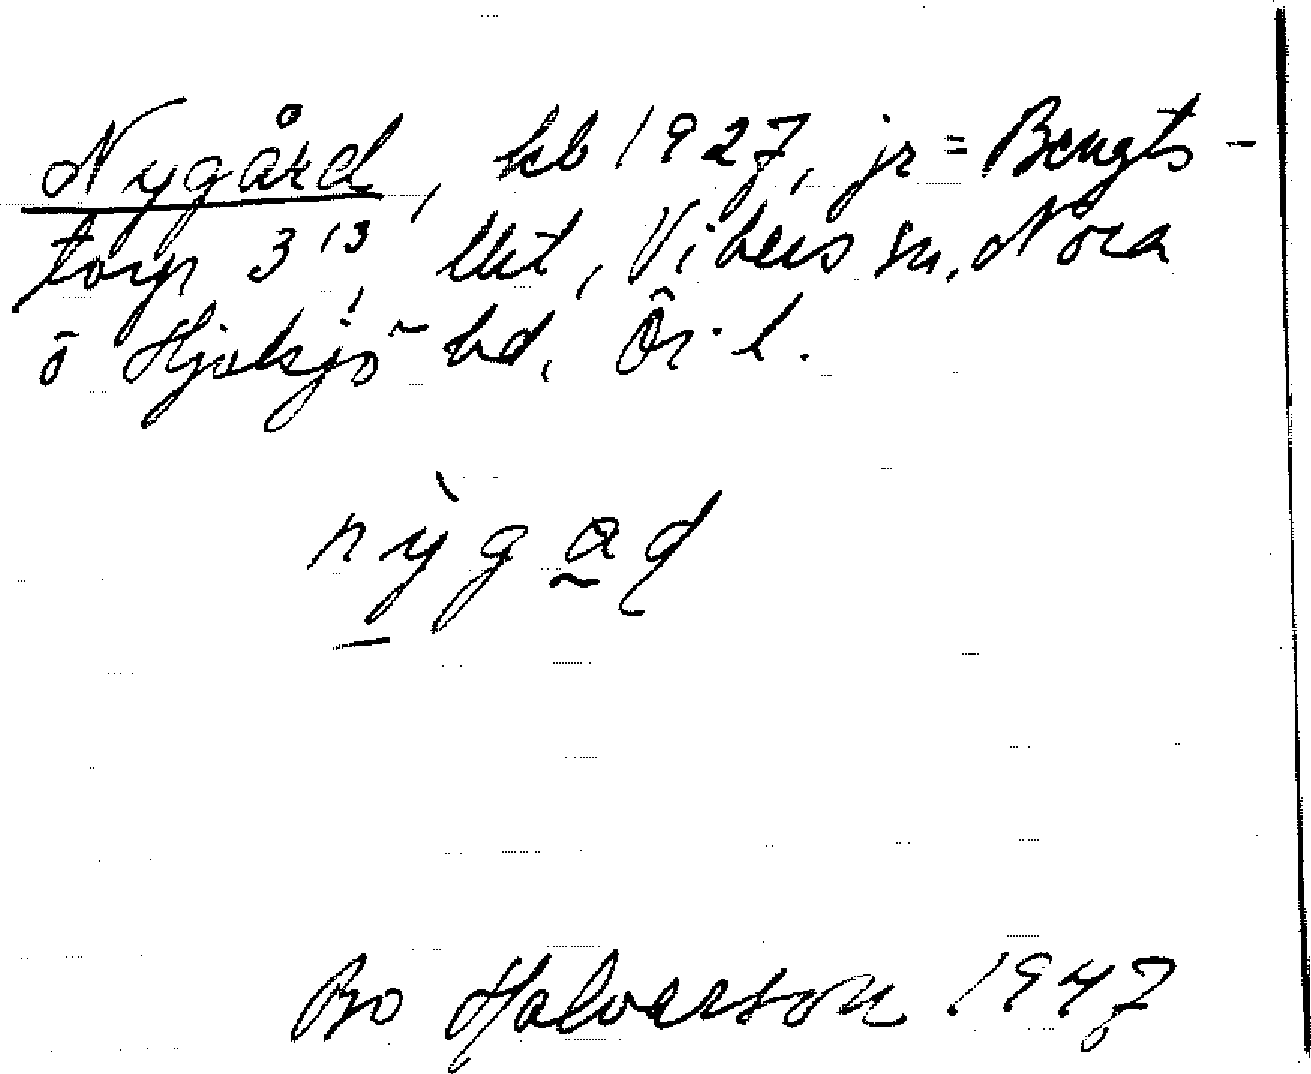 Nygård, kb 1927, jr = Bengts-
torp 3¹³, Ukt, Vikers sn, Nora
o Hjulsjö bd, Ör. l.
nỳgad
Bo Halvarson 1947